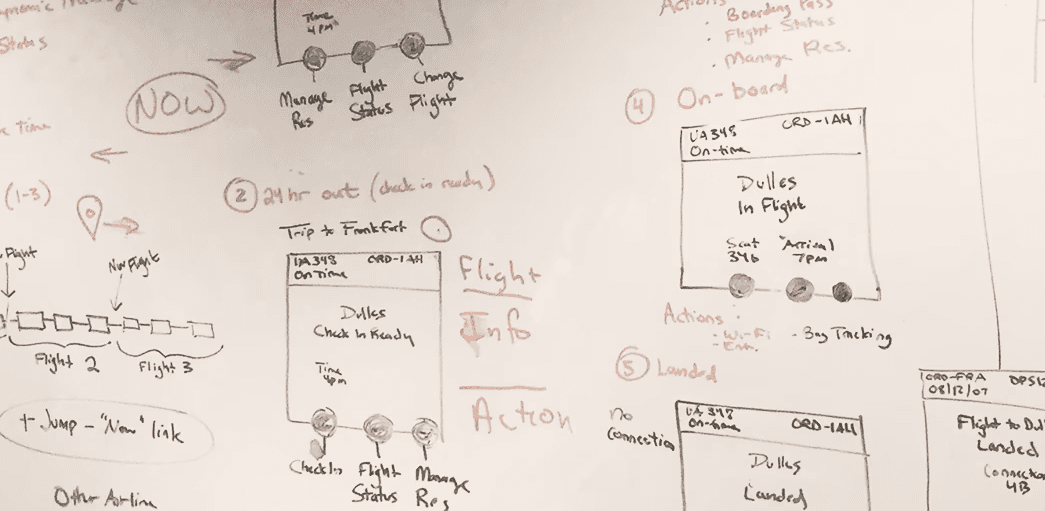 Status
NOW
Time
4pm
Manage
Res
Flight
Status
Change
Flight
Time
(1-3)
Flight
New Flight
Flight 2
Flight 3
+ Jump - "Now" link
Other Airline
2 24 hr out (check in ready)
Trip to Frankfort
UA348 ORD-IAH
On Time
Dulles
Check In Ready
Time
4pm
Check In
Flight
Status
Manage
Res
Flight
Info
Action
Actions
· Boarding Pass
· Flight Status
· Manage Res.
4 On-board
UA348 ORD-IAH
On-time
Dulles
In Flight
Seat
34b
Arrival
7pm
Actions:
- Wi-Fi
- Ent.
- Bag Tracking
5 Landed
no
Connection
UA 348 ORD-IAH
On-time
Dulles
Landed
ORD-FRA
08/12/07
Flight to Dul
Landed
Connection
4B